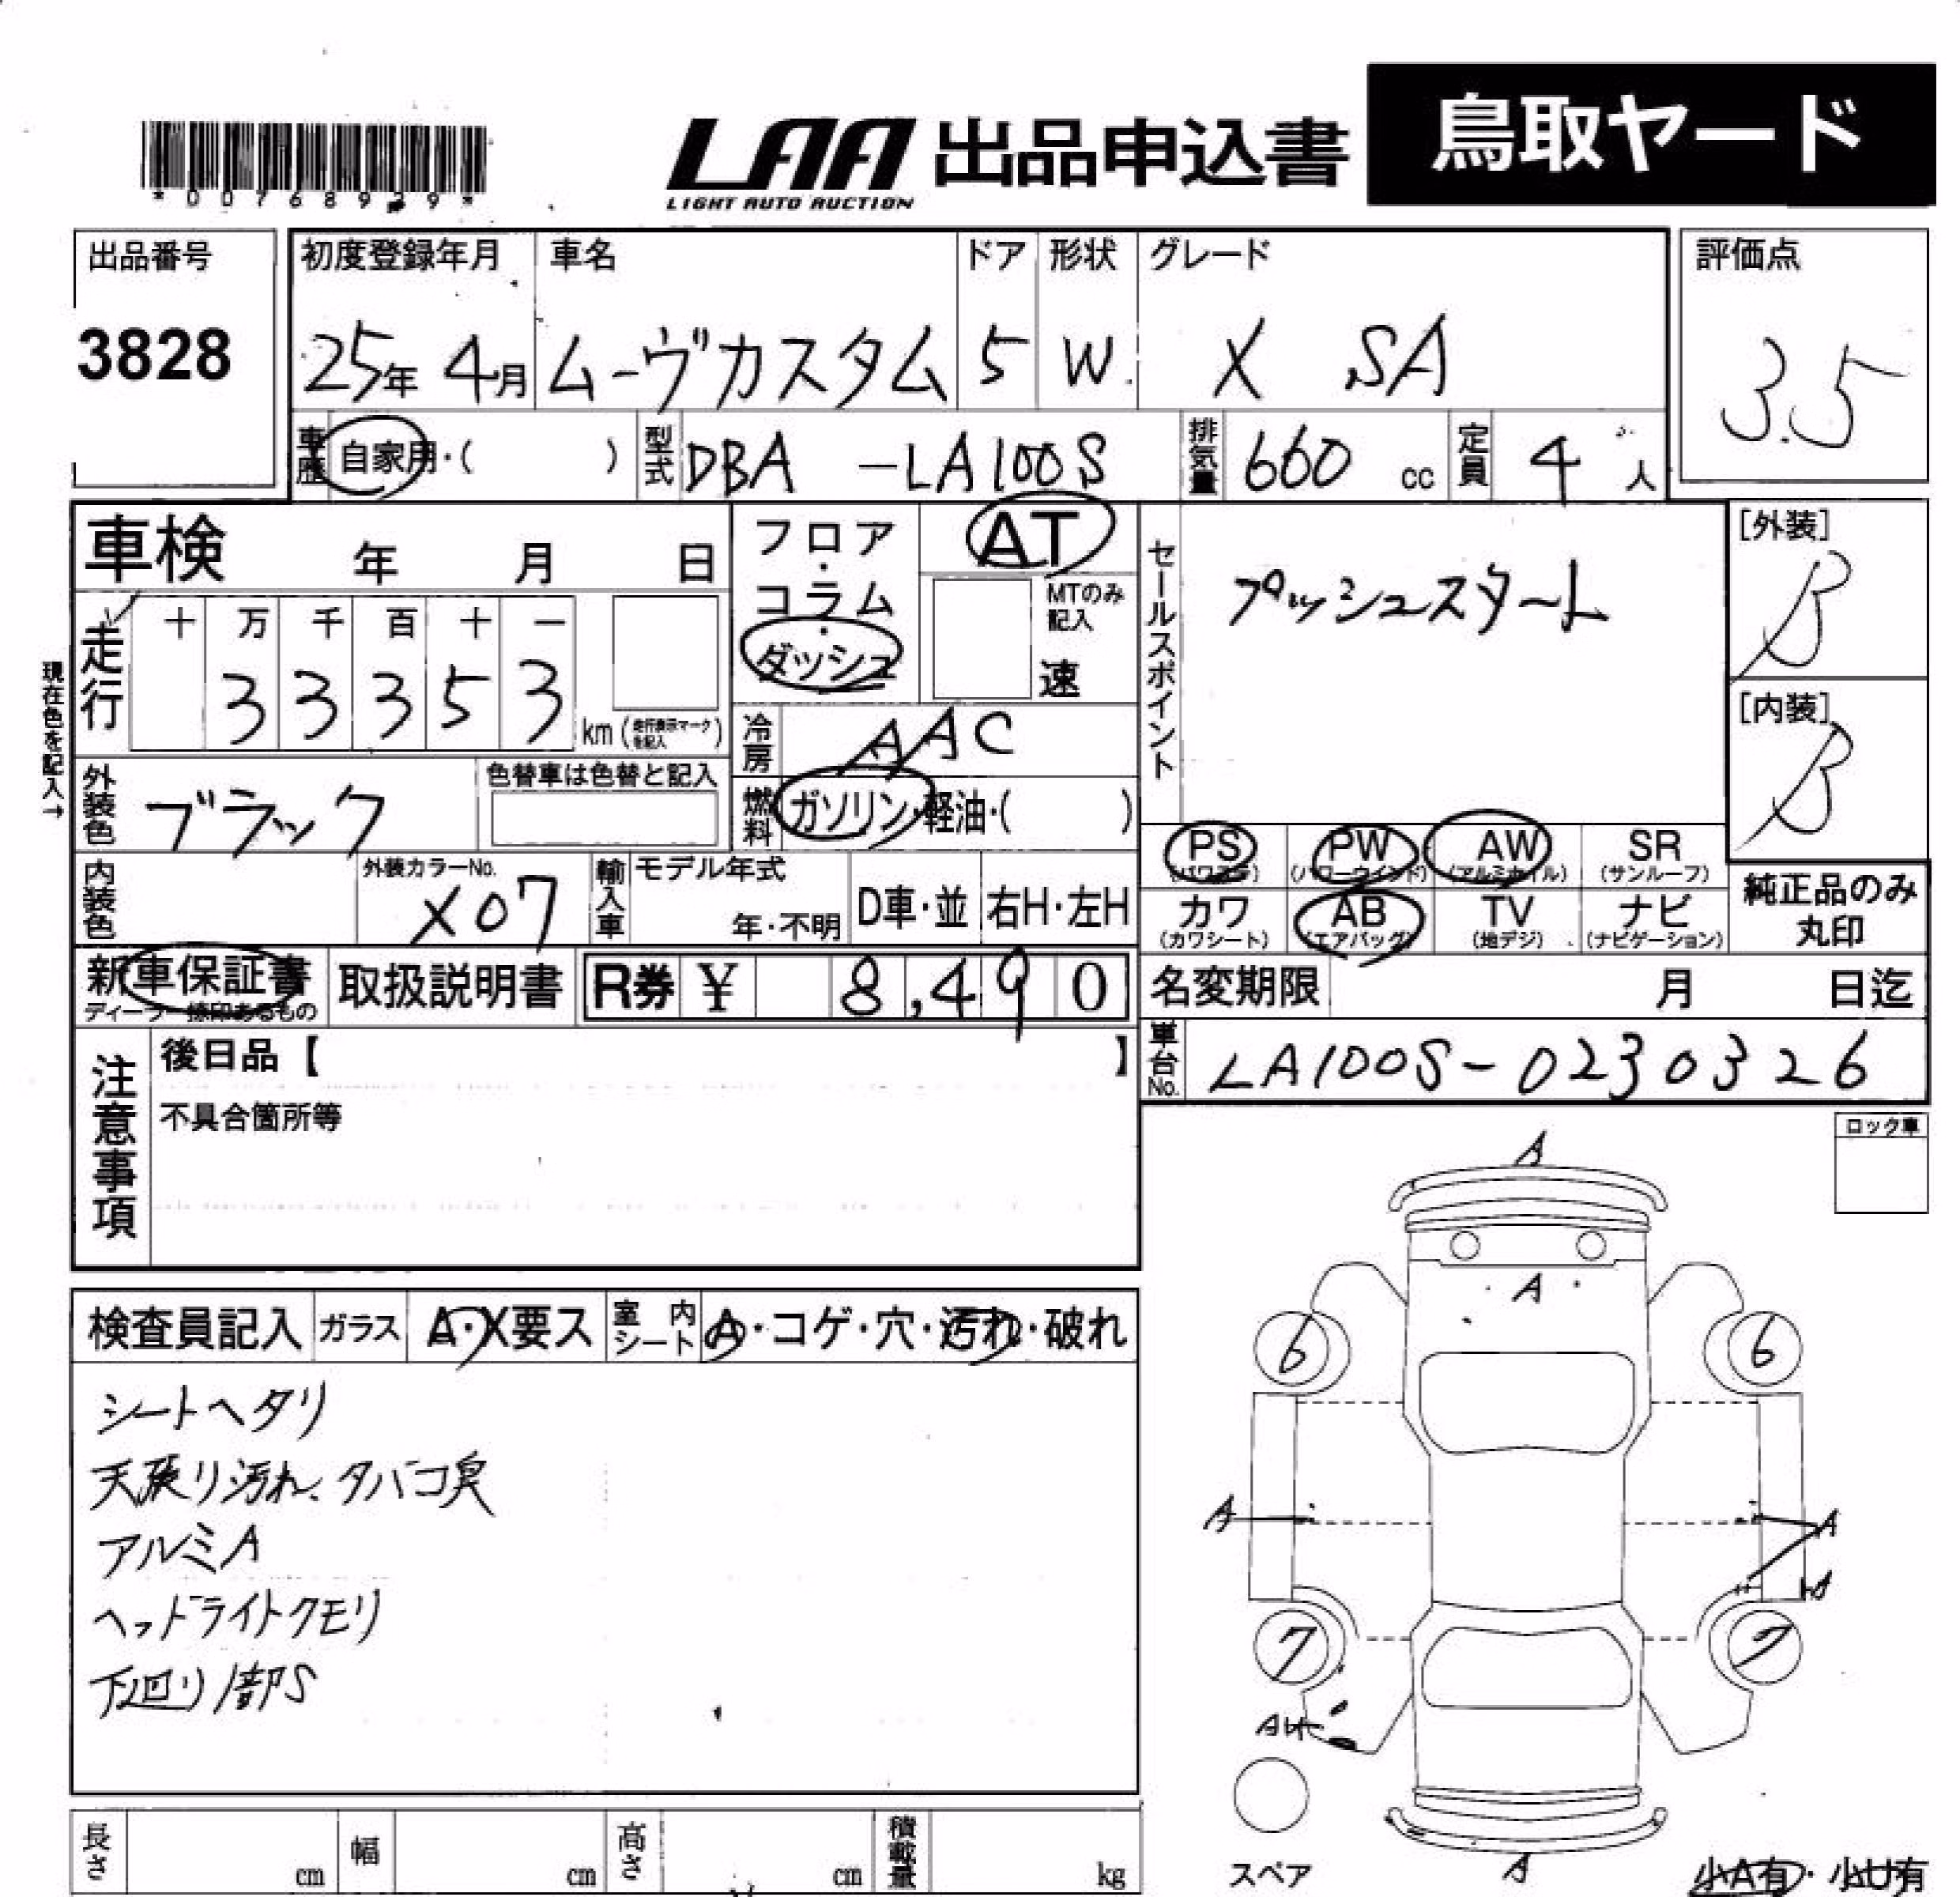 *00768929*
LAA 出品申込書 鳥取ヤード
LIGHT AUTO AUCTION
出品番号 初度登録年月 車名 ドア 形状 グレード 評価点
3828 25年 4月 ムーヴカスタム 5 W. X SA 3.5
車歴 自家用・( ) 型式 DBA -LA100S 排気量 660 cc 定員 4 人
車検 年 月 日
フロア・コラム・ダッシュ
AT
MTのみ記入
速
セールスポイント
プッシュスタート
[外装]
B
[内装]
B
現在色を記入→
走行 十 万 千 百 十 一
3 3 3 5 3 km (走行表示マークを記入)
冷房 AAC
外装色 ブラック 色替車は色替と記入
燃料 ガソリン・軽油・( )
PS (パワステ) PW (パワーウインド) AW (アルミホイル) SR (サンルーフ)
内装色 外装カラーNo. X07 輸入車 モデル年式 年・不明 D車・並 右H・左H
カワ (カワシート) AB (エアバッグ) TV (地デジ) ナビ (ナビゲーション)
純正品のみ丸印
新車保証書 ディーラー捺印あるもの 取扱説明書 R券 ¥ 8,490
名変期限 月 日迄
車台No. LA100S-0230326
注意事項
後日品【 】
不具合箇所等
ロック車
検査員記入 ガラス A・X要ス 室内シート A・コゲ・穴・汚れ・破れ
シートヘタリ
天張り汚れ、タバコ臭
アルミA
ヘッドライトクモリ
下廻り1部S
A
A
6 6
A A
A
7 7
A
スペア
小A有・小U有
長さ cm 幅 cm 高さ cm 積載量 kg